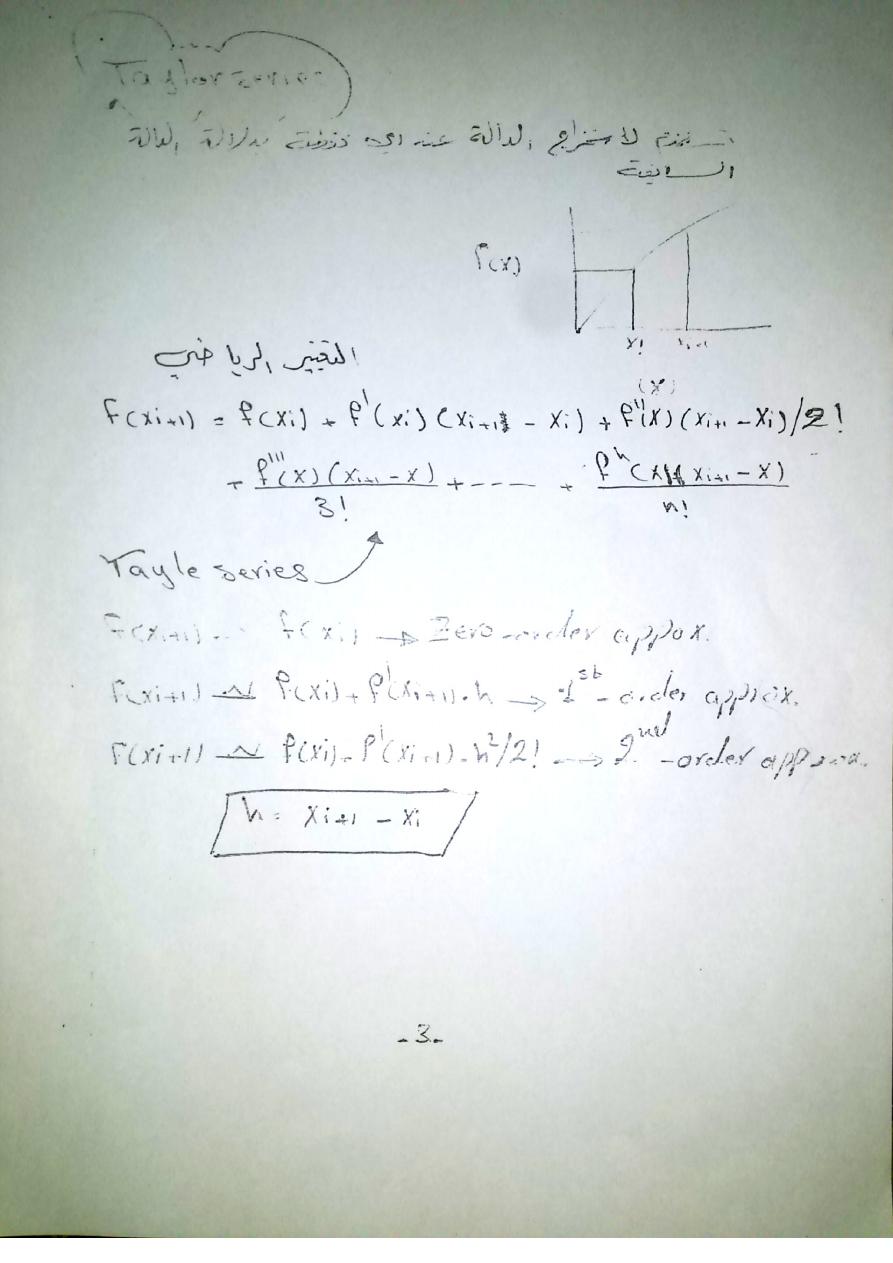 Taylor series
تستخدم لاستخراج الدالة عند اي نقطة بدلالة الدالة
السابقة
f(x)
xi xi+1
التعبير الرياضي
(x)
f(xi+1) = f(xi) + f'(xi) (xi+1 - xi) + f''(x) (xi+1 - xi)/2!
+ f'''(x) (xi+1 - x)/3! + ---- + f^n (x)(xi+1 - x)/n!
Tayle series
f(xi+1) f(xi) → Zero-order appox.
f(xi+1) ≃ f(xi) + f'(xi+1).h → 1st - order approx.
f(xi+1) ≃ f(xi) - f'(xi+1) - h²/2! → 2nd -order approx.
h = xi+1 - xi
-3-